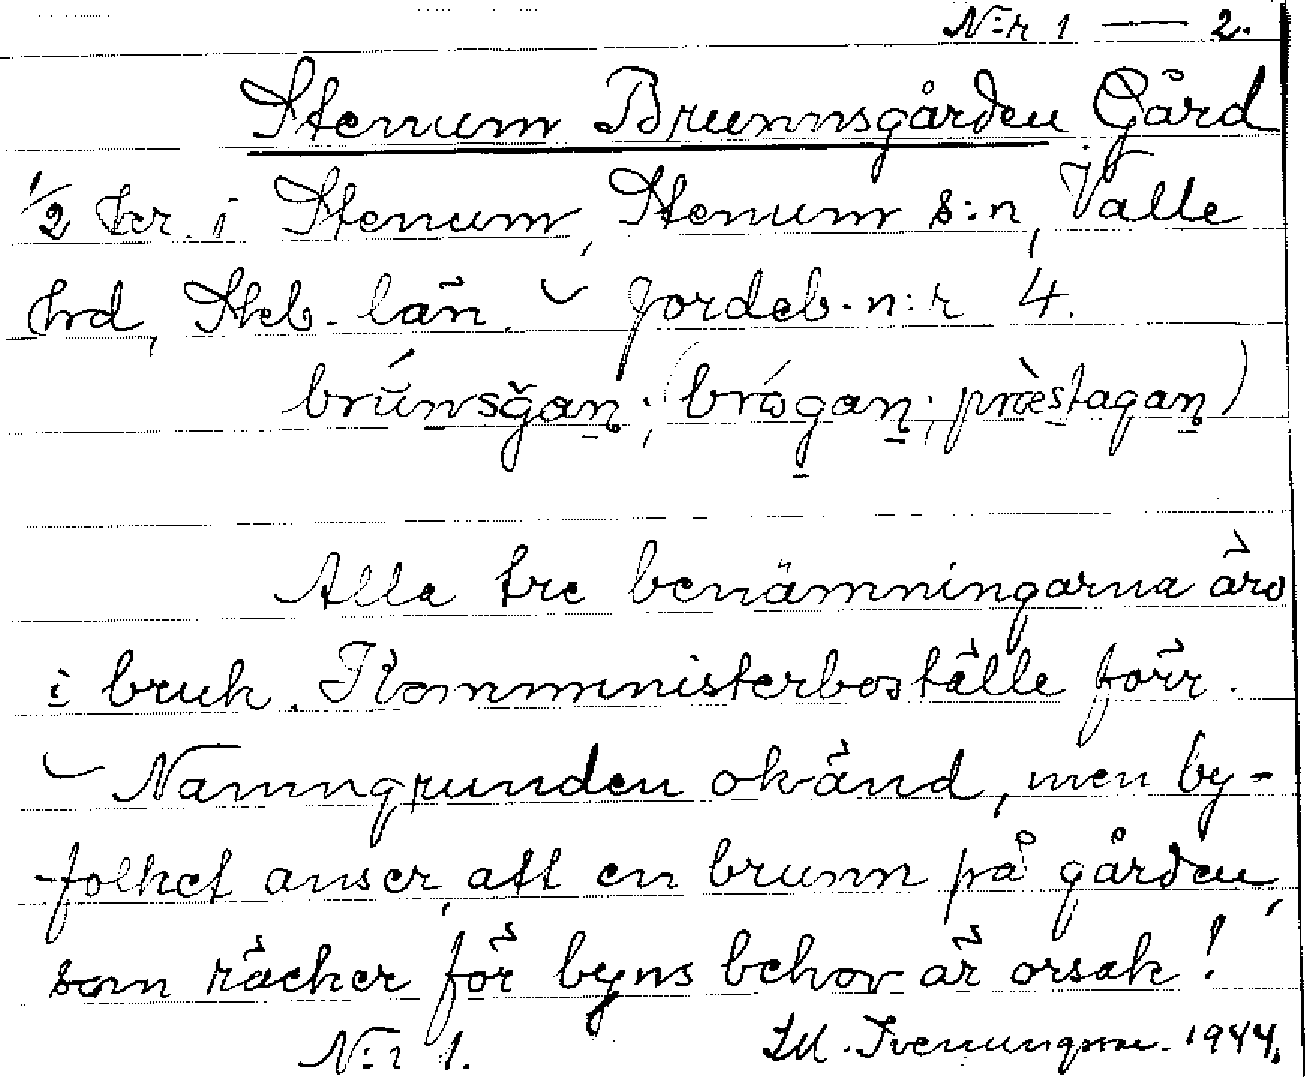 N:r 1 — 2.
Stenum Brunnsgården Gård
1/2 ter. i Stenum, Stenum s:n, Valle
hrd, Skb. län. Jordeb. n:r 4.
brúnsgan; (brógan; præ̀stagan)
Alla tre benämningarna äro
i bruk. Komministerboställe förr.
Namngrunden okänd, men by-
folket anser, att en brunn på gården,
som räcker för byns behov är orsak!
N:r 1. 1944.